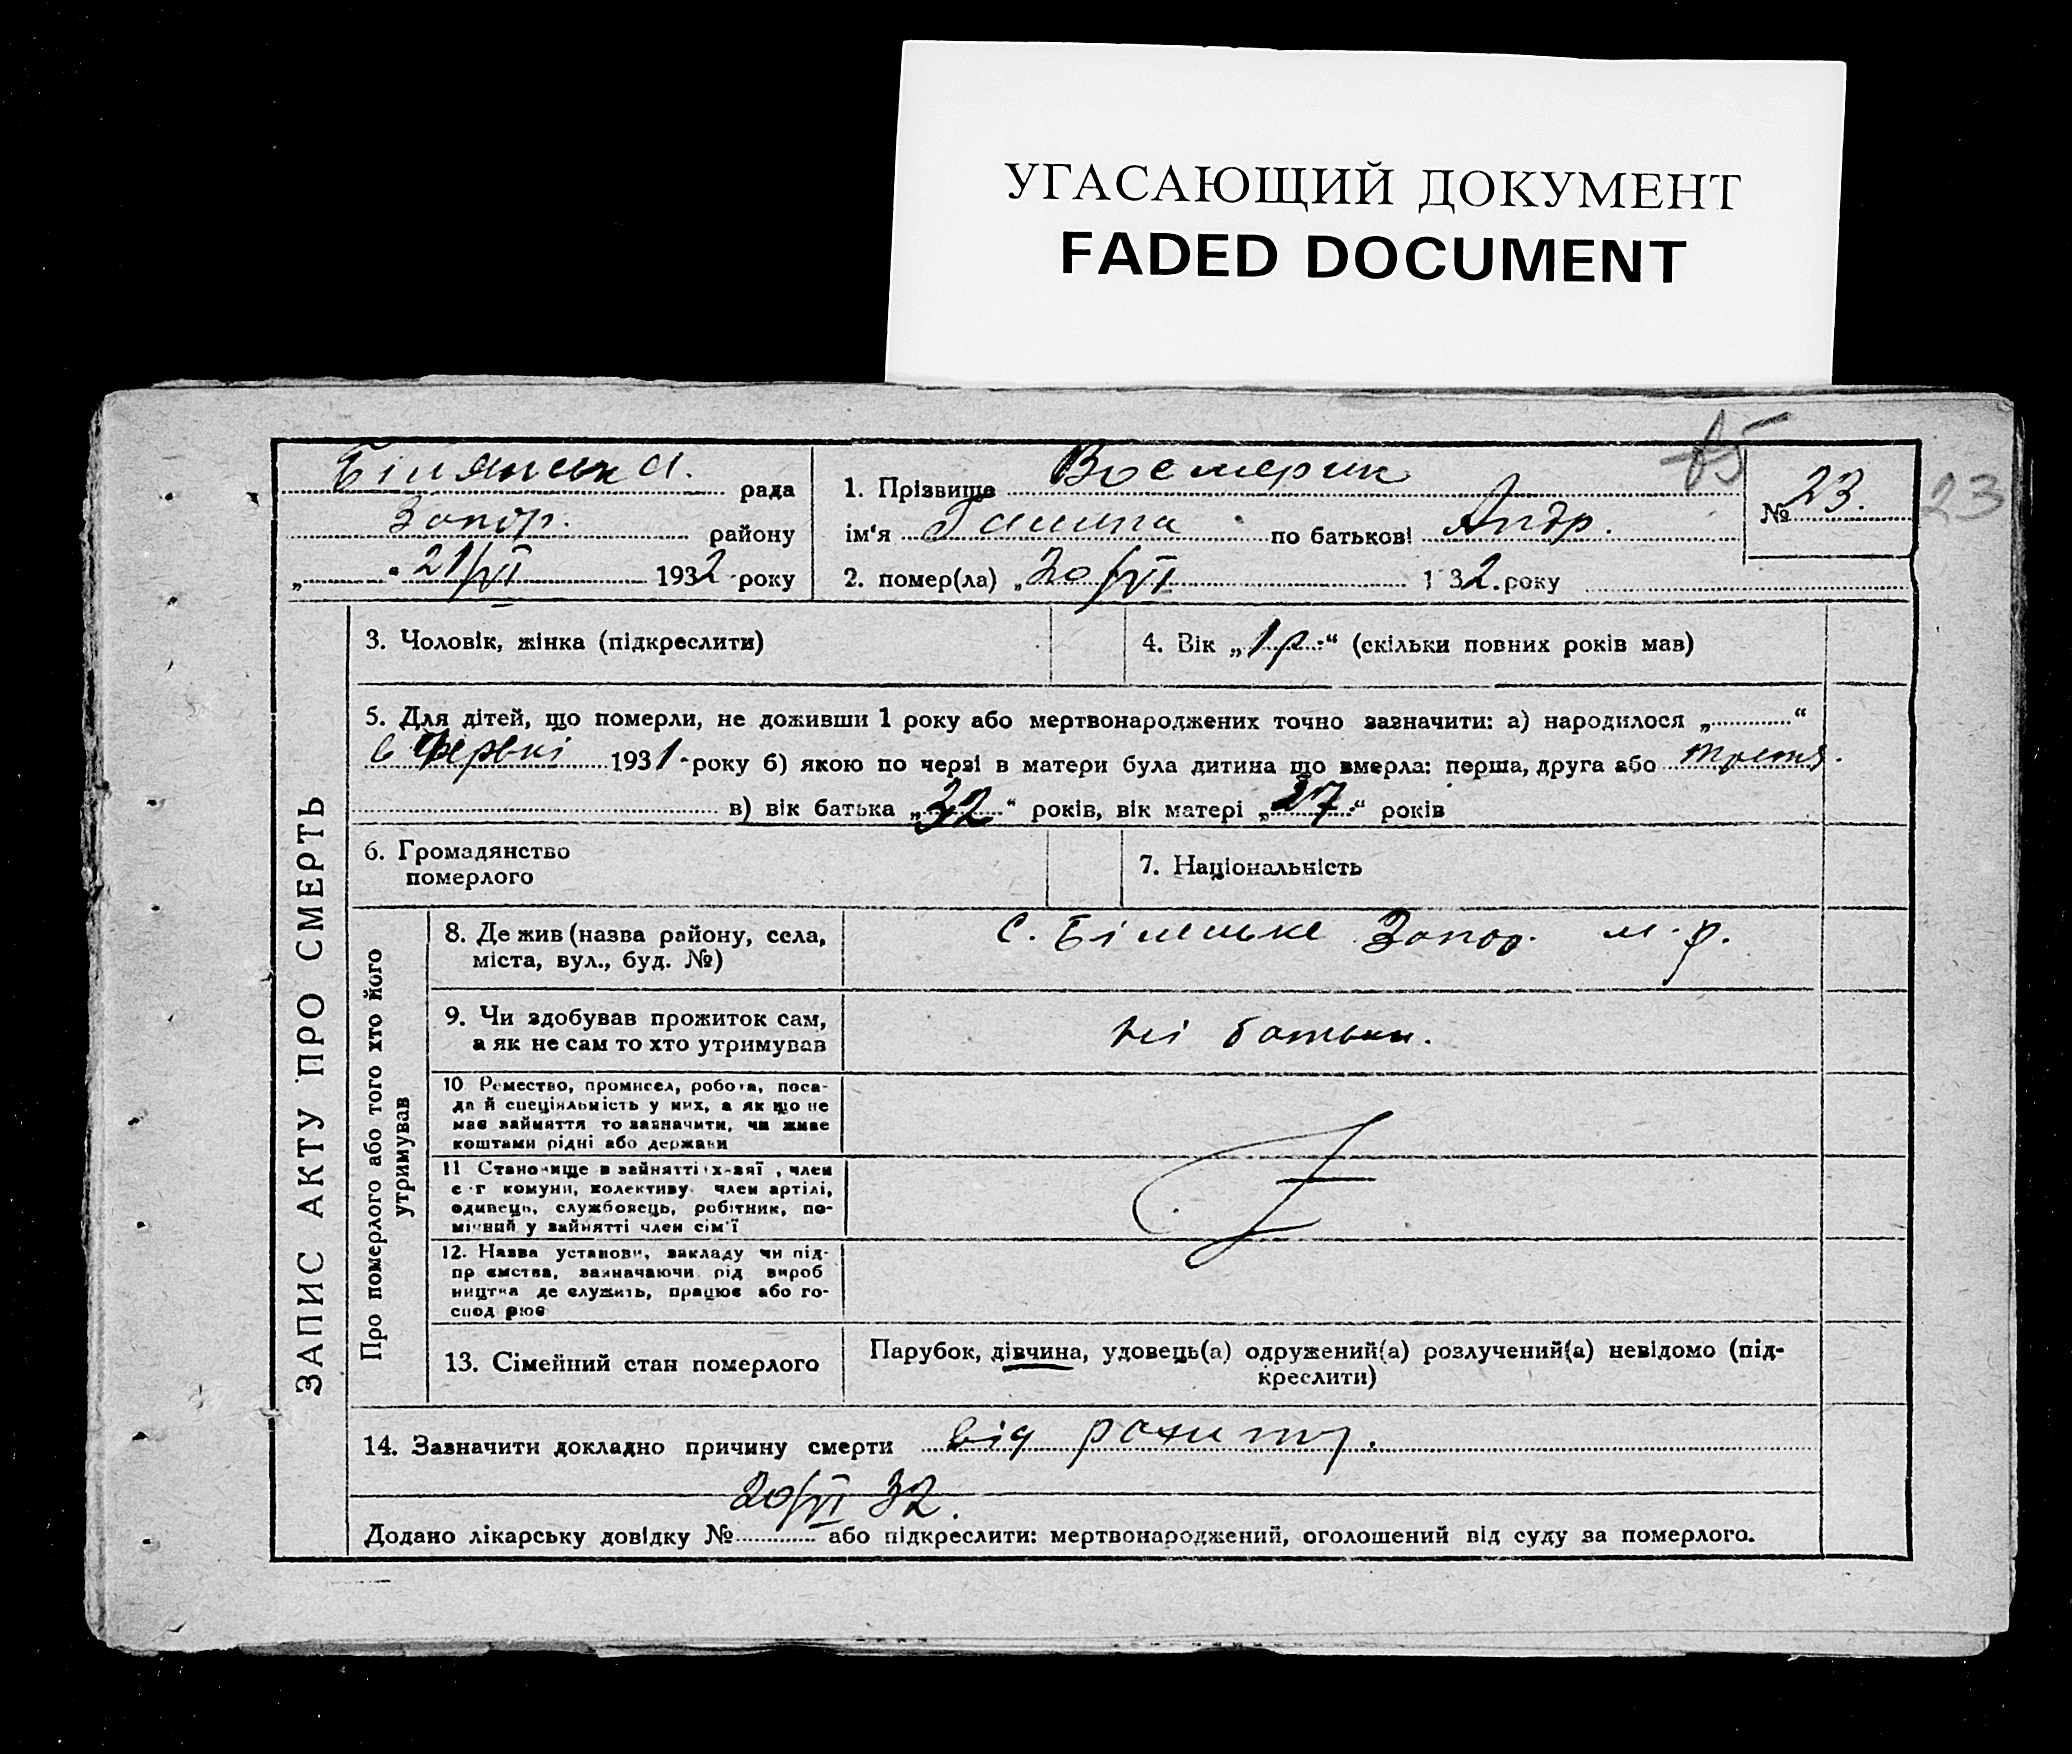 УГАСАЮЩИЙ ДОКУМЕНТ
FADED DOCUMENT
рада
Запор. району
„ “ 21/VI 1932 року
1. Прізвище
ім‘я по батькові Андр.
2. помер(ла) „20/VI 1 32. року
№ 23.
23
ЗАПИС АКТУ ПРО СМЕРТЬ
3. Чоловік, жінка (підкреслити)
4. Вік „1 р.“ (скільки повних років мав)
5. Для дітей, що померли, не доживши 1 року або мертвонароджених точно зазначити: а) народилося „ “
в 1931 року б) якою по черзі в матери була дитина що вмерла: перша, друга або третя.
в) вік батька „32“ років, вік матері „27“ років
6. Громадянство
померлого
7. Національність
Про померлого або того хто його
утримував
8. Де жив (назва району, села,
міста, вул., буд. №)
с. Біленьке Запор. м. р.
9. Чи здобував прожиток сам,
а як не сам то хто утримував
ні батьки.
10 Ремество, промисел, робота, поса-
да й спеціяльність у них, а як що не
має зайняття то зазначити, чи живе
коштами рідні або держави
11 Становище в зайнятті , член
с г комуни, колективу член артілі,
одинець, службовець, робітник, по-
мічний у зайнятті член сім'ї
12. Назва установи, закладу чи під-
пр ємства, зазначаючи рід вироб
ництва де служить, працює або го-
спод рює
13. Сімейний стан померлого
Парубок, дівчина, удовець(а) одружений(а) розлучений(а) невідомо (під-
креслити)
14. Зазначити докладно причину смерти від рахиту.
20/VI 32.
Додано лікарську довідку № або підкреслити: мертвонароджений, оголошений від суду за померлого.